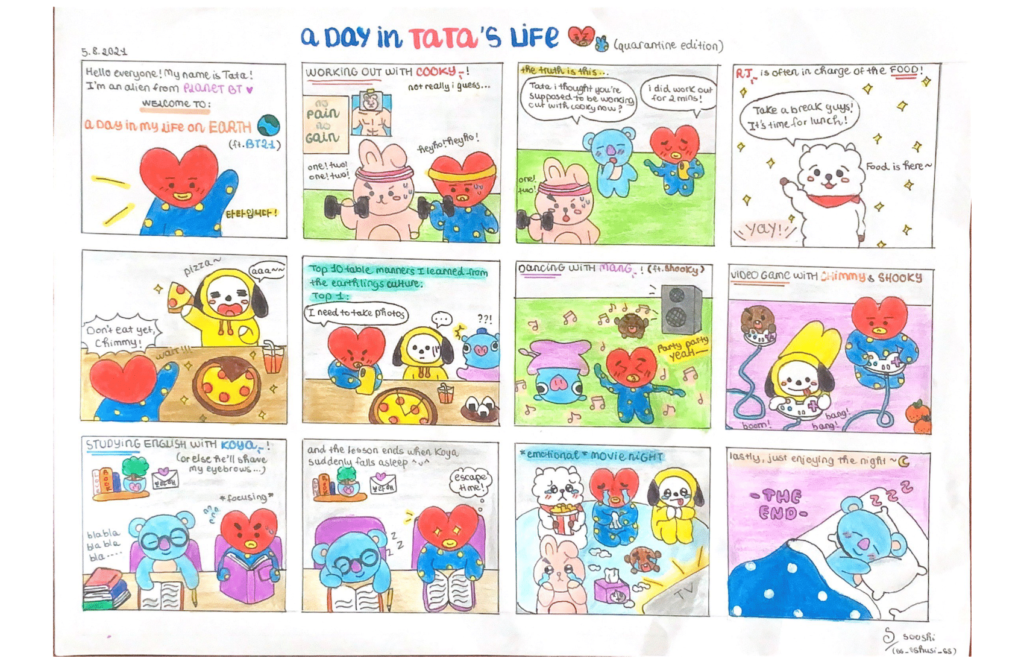 a DAY in TATA'S LiFE (quarantine edition)
5.8.2021
Hello everyone! My name is Tata!
I'm an alien from PLANET BT ♥
WELCOME TO:
a DAY in MY LiFE on EARTH
(ft. BT21)
타타입니다!
WORKING OUT WITH COOKY~!
not really i guess...
no
PAIN
no
GAIN
one! two!
one! two!
heyho! heyho!
the truth is this...
Tata i thought you're
supposed to be working
out with cooky now?
I did work out
for 2 mins!
one!
two!
RJ is often in charge of the FOOD!
Take a break guys!
It's time for lunch!
Food is here~
YAY!
pizza~
aaa~~
Don't eat yet,
Chimmy!
wait!!!
Top 10 table manners I learned from
the earthlings culture:
Top 1:
I need to take photos
...
??!
DANCING WITH MANG~! (ft. Shooky)
Party party
YEAH~
VIDEO GAME WITH CHIMMY & SHOOKY
boom!
bang!
bang!
STUDYING ENGLISH WITH KOYA~!
(or else he'll shave
my eyebrows...)
*focusing*
blabla
bla bla
bla....
and the lesson ends when Koya
suddenly falls asleep ^v^
escape
time!
z z z
*emotional* MOVIE NIGHT
TV
lastly, just enjoying the night~
-THE
END-
z z z
sooshi